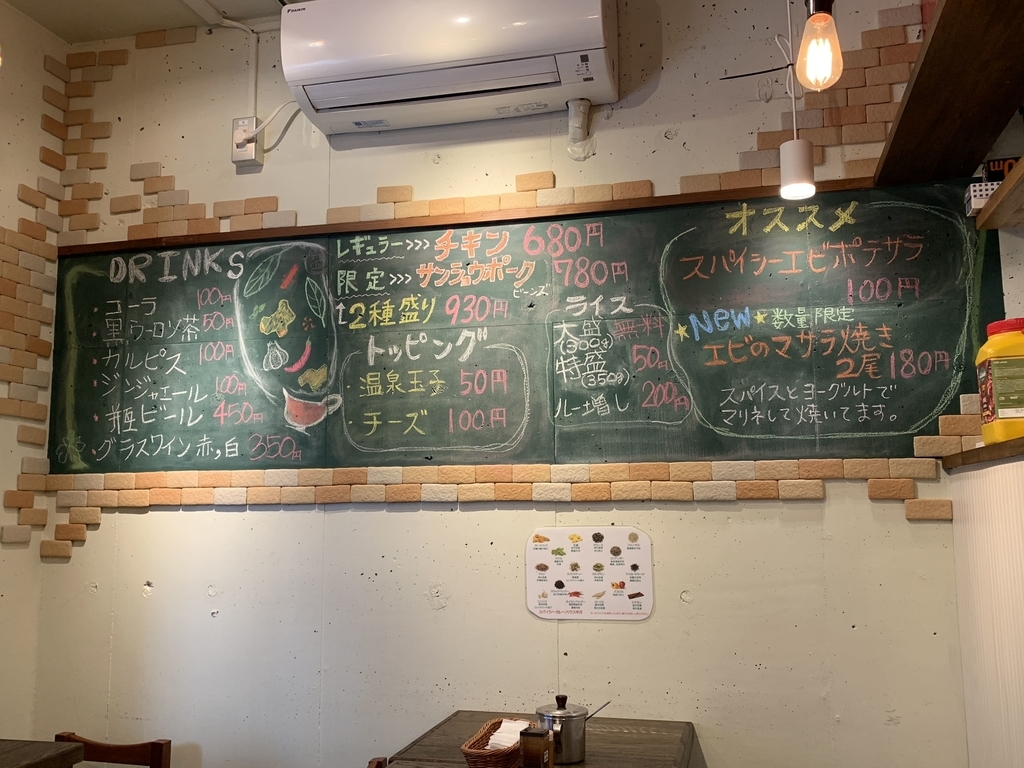 DAIKIN
DRINKS
・コーラ 100円
・黒ウーロン茶 50円
・カルピス 100円
・ジンジャエール 100円
・瓶ビール 450円
・グラスワイン 赤,白 350円
レギュラー>>> チキン 680円
限定>>> サンショウポーク 780円
ビーンズ
2種盛り 930円
トッピング
・温泉玉子 50円
・チーズ 100円
ライス
大盛 無料
(300g)
特盛 50円
(350g)
ルー増し 200円
オススメ
スパイシーエビポテサラ
100円
★New★数量限定
エビのマサラ焼き
2尾 180円
スパイスとヨーグルトで
マリネして焼いてます。